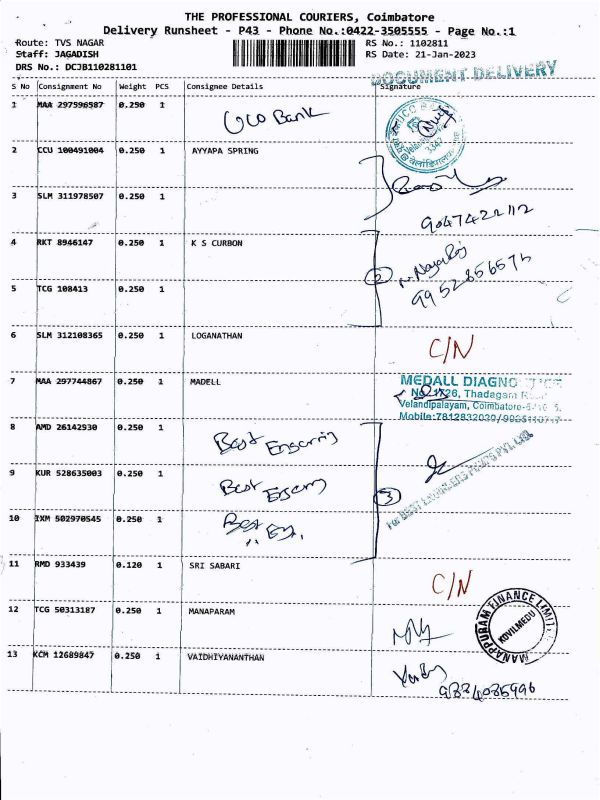 THE PROFESSIONAL COURIERS, Coimbatore
Delivery Runsheet - P43 - Phone No.:0422-3505555 - Page No.:1
Route: TVS NAGAR RS No.: 1102811
Staff: JAGADISH RS Date: 21-Jan-2023
DRS No.: DCJB110281101
DOCUMENT DELIVERY
S No Consignment No Weight PCS Consignee Details Signature
1 MAA 297596587 0.250 1 UCO Bank
2 CCU 100491004 0.250 1 AYYAPA SPRING
3 SLM 311978507 0.250 1
4 RKT 8946147 0.250 1 K S CURBON
5 TCG 108413 0.250 1
6 SLM 312108365 0.250 1 LOGANATHAN C/N
7 MAA 297744867 0.250 1 MADELL
MEDALL DIAGNO
Thadagam
Velandipalayam, Coimbatore
8 AMD 26142930 0.250 1 Best
9 KUR 528635003 0.250 1 Best
10 IXM 502970545 0.250 1 Best
3
For BEST ENGINEERS PUMPS PVT. LTD.
11 RMD 933439 0.120 1 SRI SABARI C/N
12 TCG 50313187 0.250 1 MANAPARAM
MANAPPURAM FINANCE LIMITED
KOVILMEDU
13 KCM 12689847 0.250 1 VAIDHIYANANTHAN